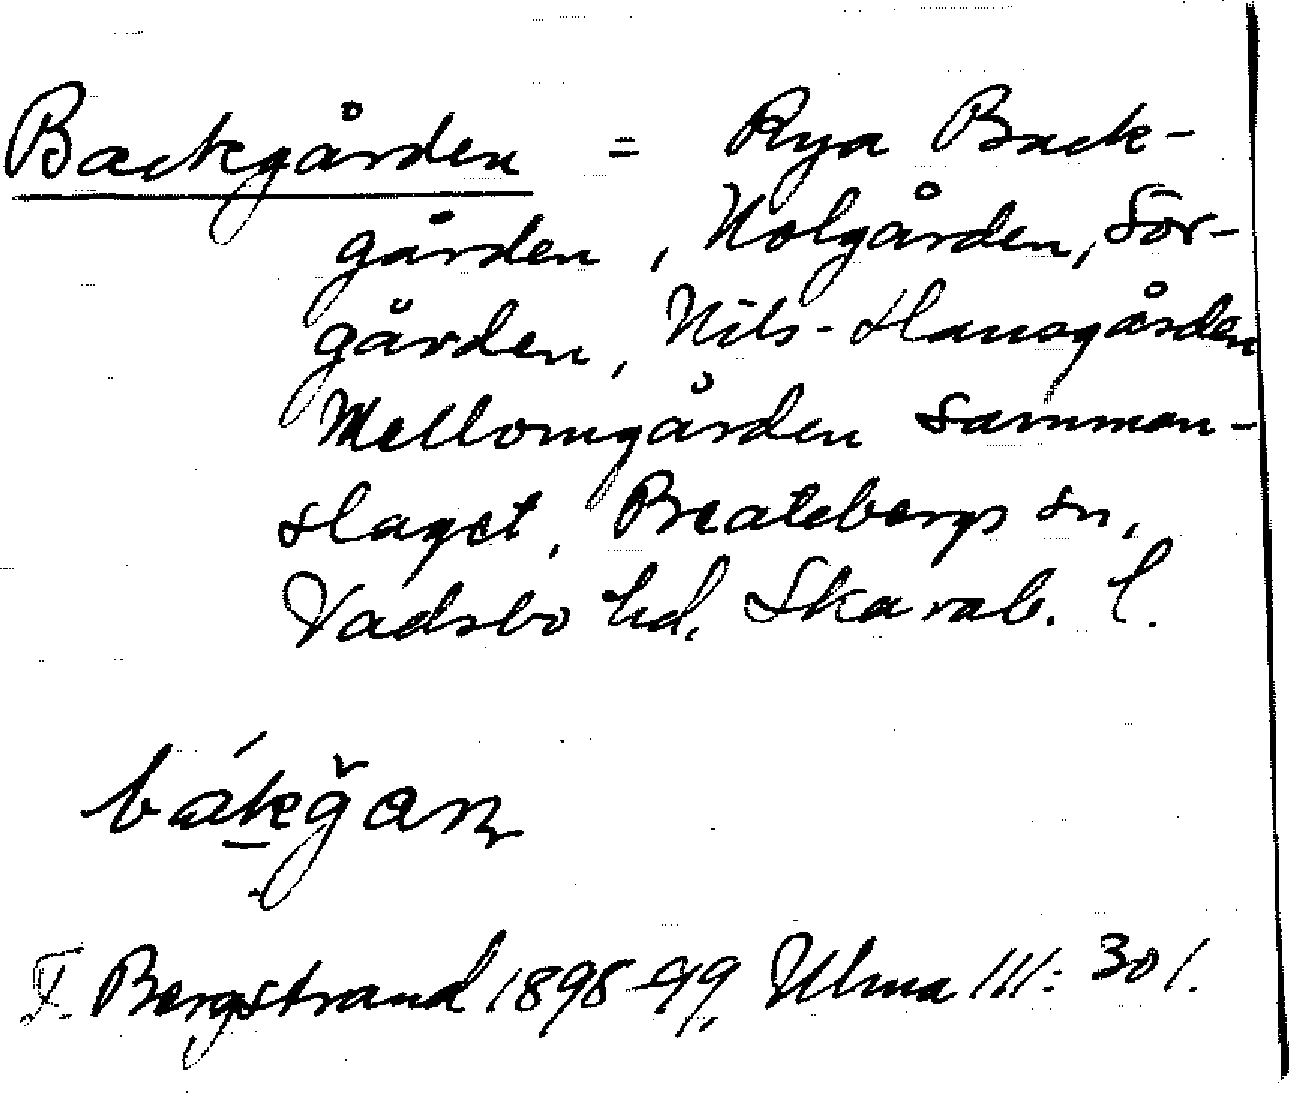 Backgården = Rya Back-
gården, Nolgården, Sör-
gården, Nils-Hansgården
Mellomgården samman-
slaget, Beatebergs sn,
Vadsbo hd, Skarab. l.
F. Bergstrand 1898-99, Ulma 111: 301.